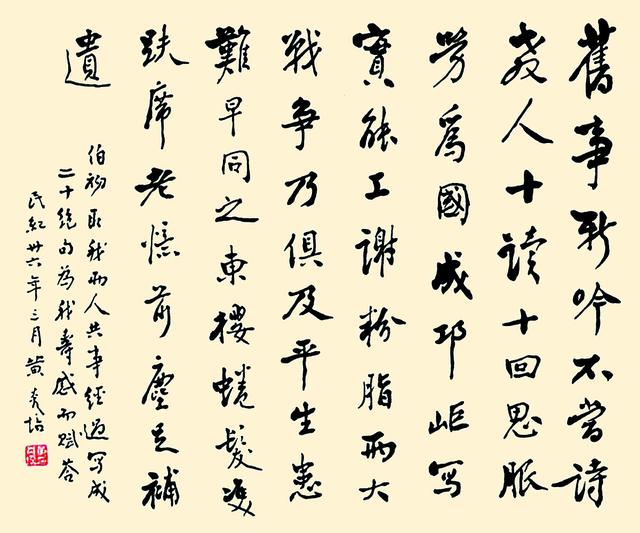 舊事新吟不當詩
教人十讀十回思服
勞爲國成邛岠寫
實能工謝粉脂兩大
戰爭乃俱及平生患
難早同之東樓蜷髮雙
趺席老憶前塵足補
遺
伯初取我兩人共事經過寫成
二十絕句為我壽感而賦答
民紀卅六年三月黃炎培